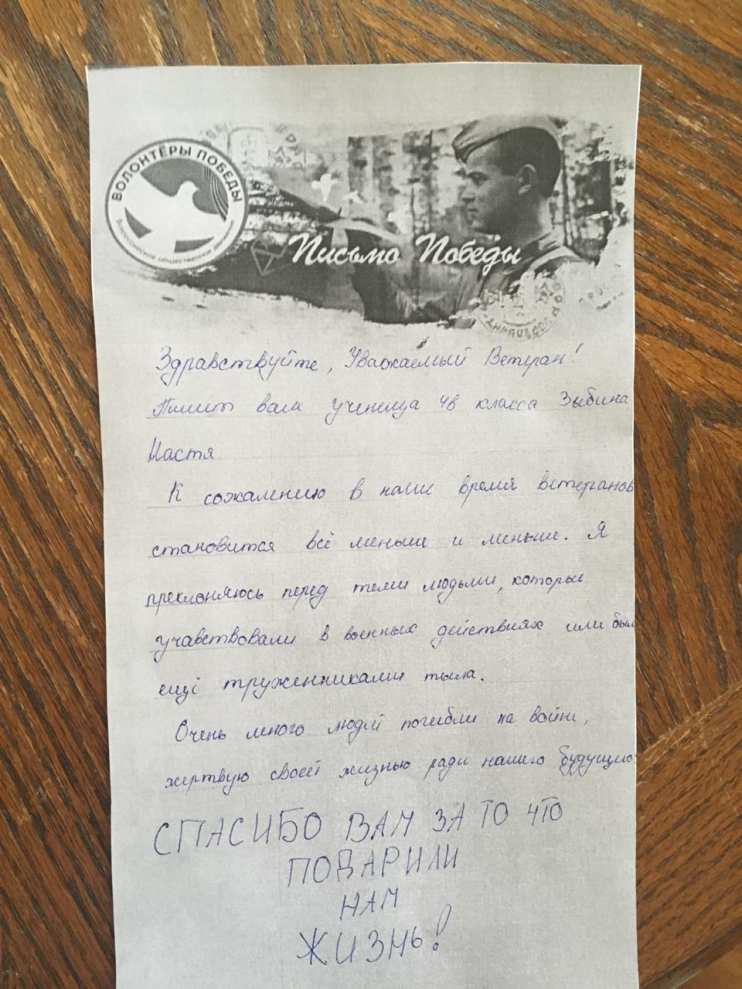 ВОЛОНТЁРЫ ПОБЕДЫ
ВСЕРОССИЙСКОЕ ОБЩЕСТВЕННОЕ ДВИЖЕНИЕ
Письмо Победы
Здравствуйте, Уважаемый Ветеран!
Пишет вам ученица 4в класса Зыбина
Настя
К сожалению в наше время ветеранов
становится всё меньше и меньше. Я
преклоняюсь перед теми людьми, которые
учавствовали в военных действиях или был
ещё труженниками тыла.
Очень много людей погибли на войне,
жертвую своей жизнью ради нашего будущего
СПАСИБО ВАМ ЗА ТО ЧТО
ПОДАРИЛИ
НАМ
ЖИЗНЬ!